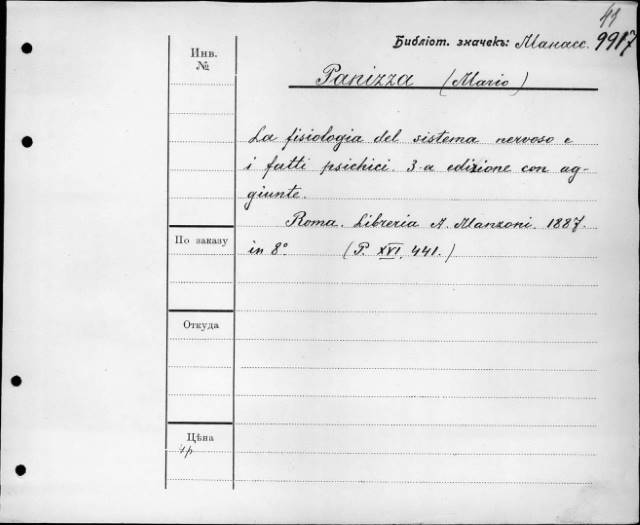 41
Библіот. значекъ: Манасс. 9917
Инв.
№
Panizza (Mario)
La fisiologia del sistema nervoso e
i fatti psichici. 3-a edizione con ag-
giunte.
Roma. Libreria A. Manzoni. 1887.
По заказу
in 8°. (P. XVI, 441.)
Откуда
Цѣна
4р